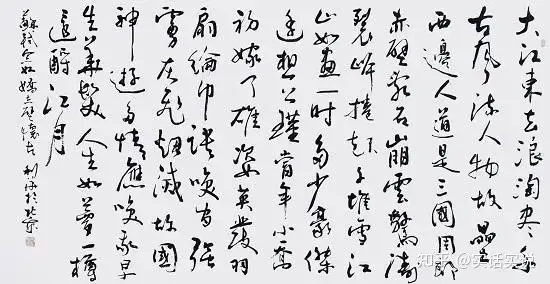 大江東去浪淘盡千
古風流人物故壘
西邊人道是三國周郎
赤壁亂石崩雲驚濤
裂岸捲起千堆雪江
山如畫一時多少豪傑
遙想公瑾當年小喬
初嫁了雄姿英發羽
扇綸巾談笑間強
虜灰飛煙滅故國
神遊多情應笑我早
生華髮人生如夢一樽
還酹江月
蘇軾念奴嬌赤壁懷古 利 於北京
知乎 @实话实说